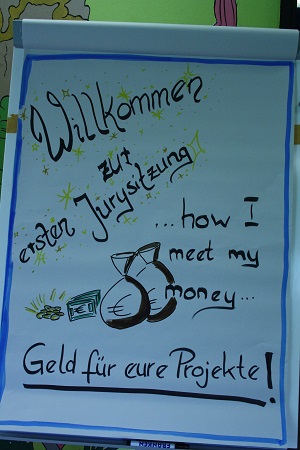 Willkommen
zur
ersten Jurysitzung
...how I
meet my
money...
€
Geld für eure Projekte!